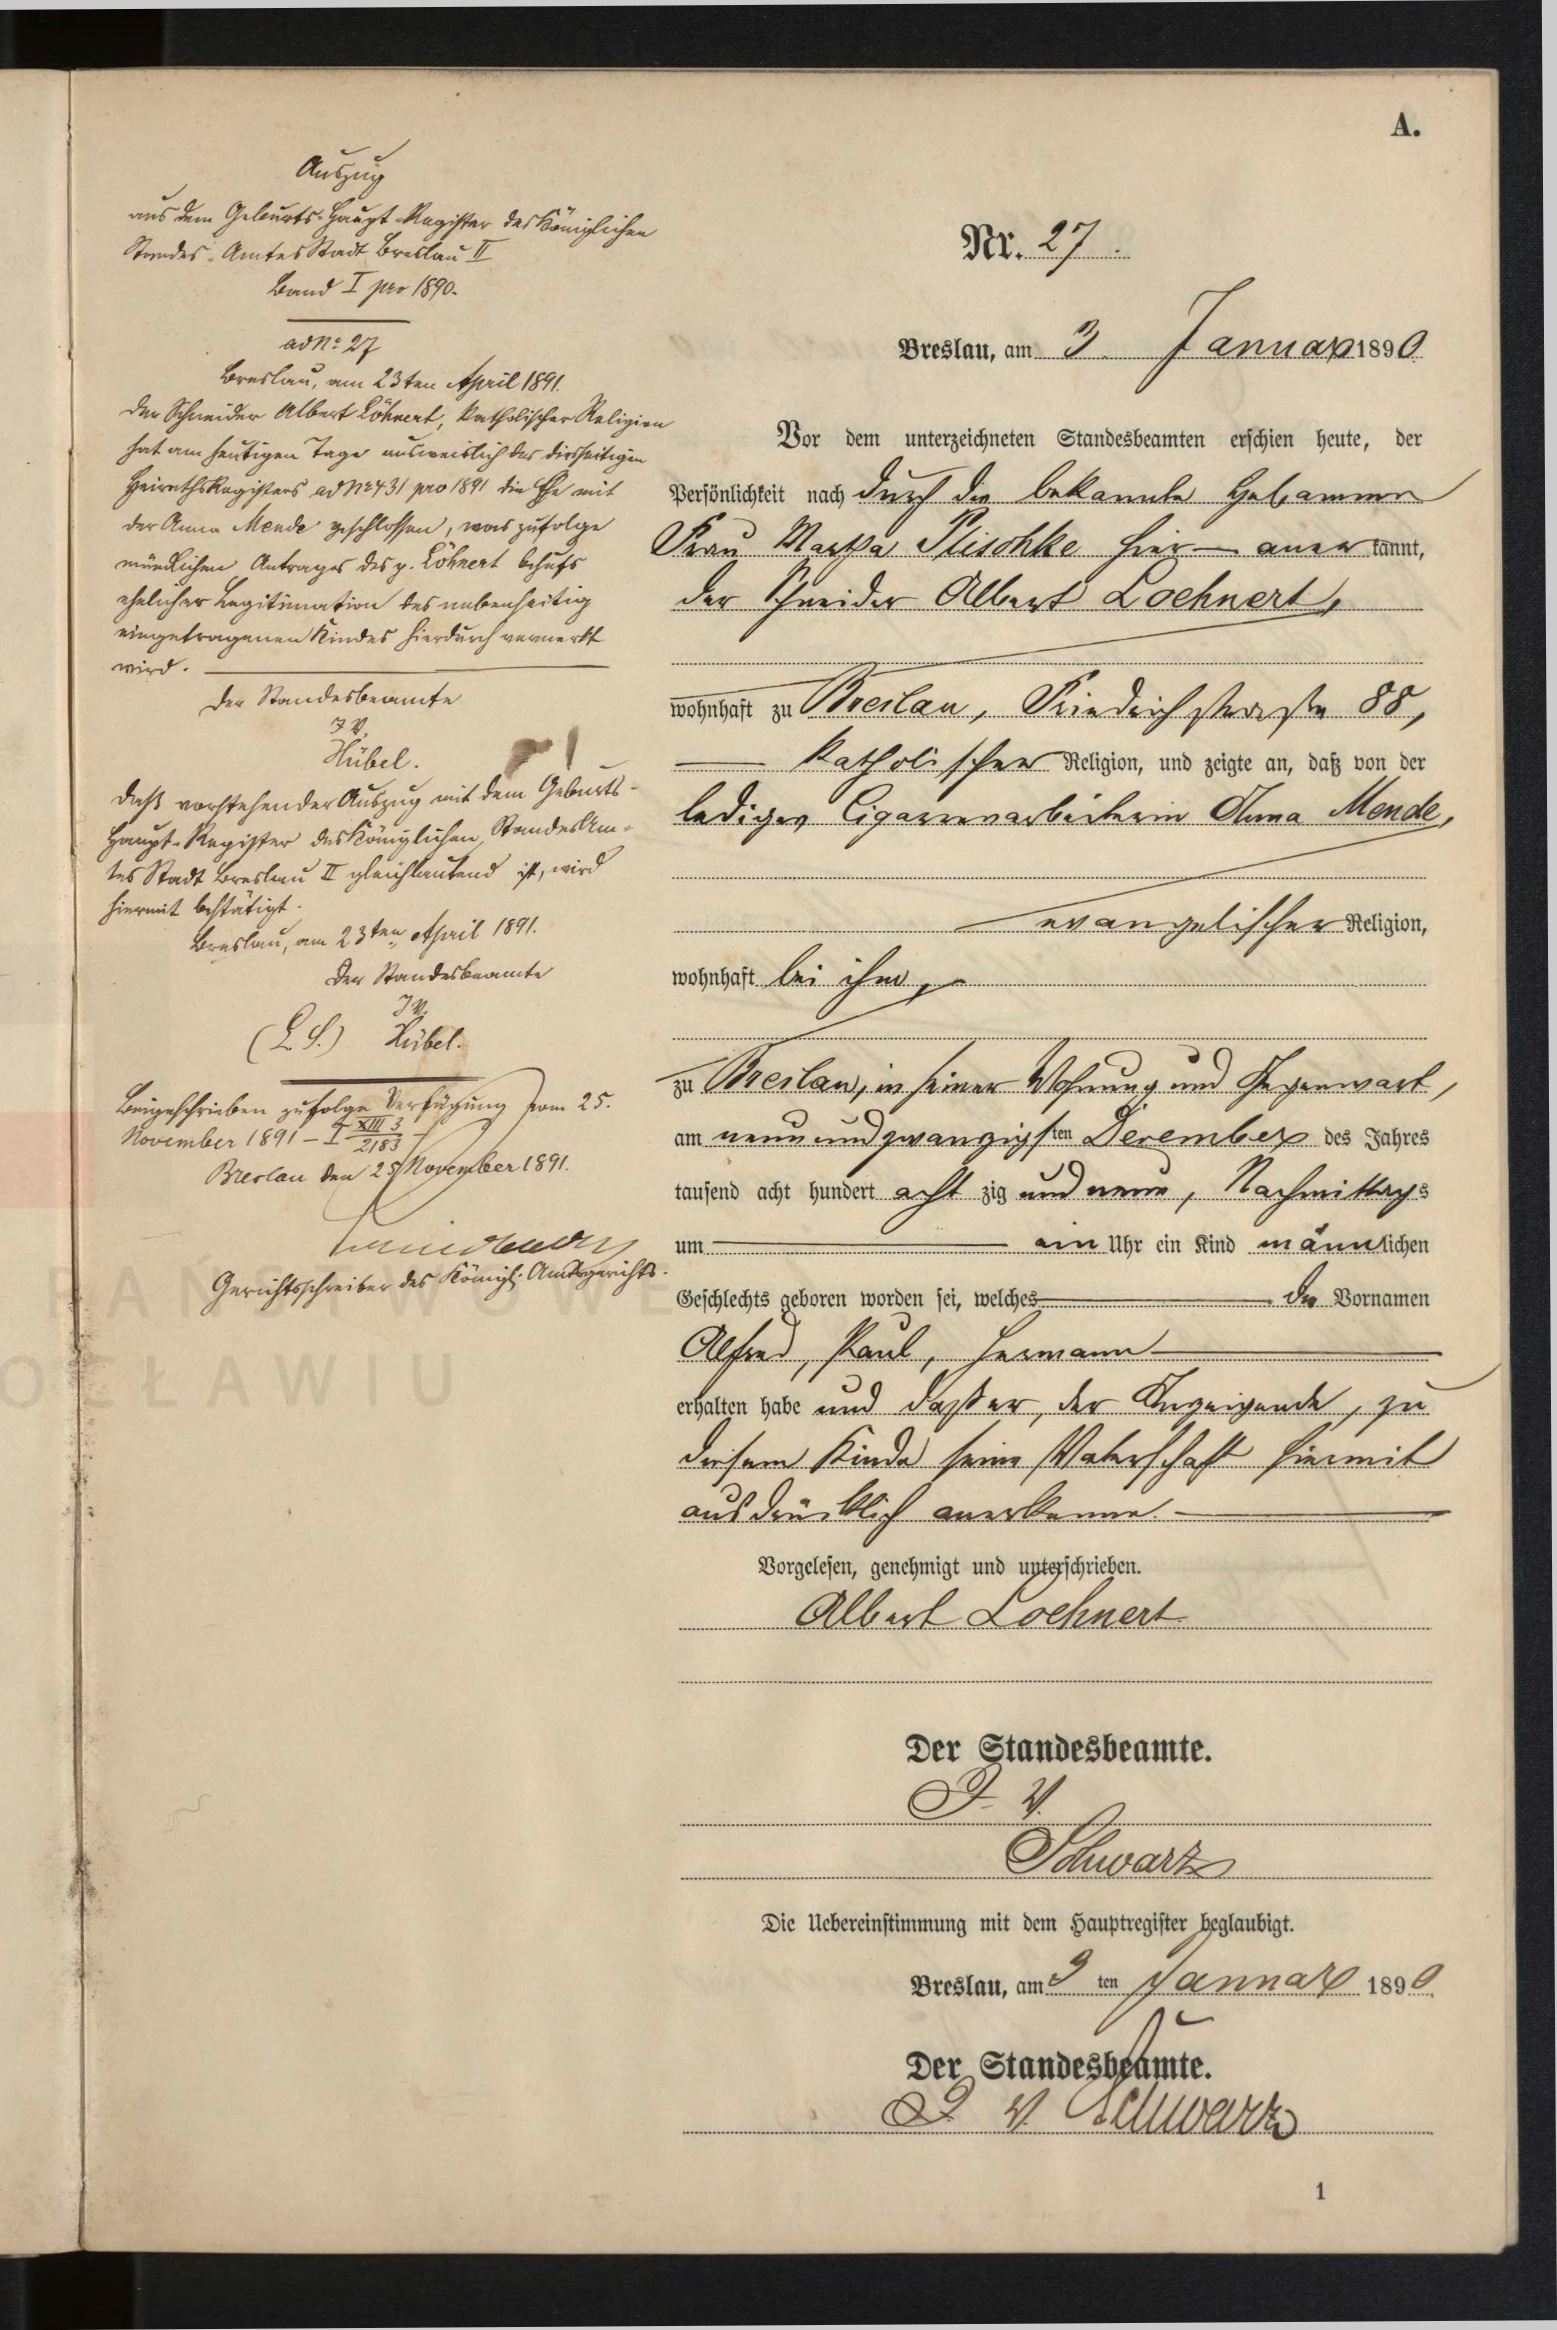 A.
Auszug
aus dem Geburts-Haupt-Register des Königlichen
Standes-Amtes Stadt Breslau II
Band I pro 1890.
ad No 27
Breslau, am 23ten April 1891.
Der Schneider Albert Löhnert, katholischer Religion
hat am heutigen Tage ausweislich des diesseitigen
Heiraths Registers ad No 431 pro 1891 die Ehe mit
der Anna Mende geschlossen, was zufolge
mündlichen Antrages des p. Löhnert behufs
ehelicher Legitimation des nebenseitig
eingetragenen Kindes hierdurch vermerkt
wird.
Der Standesbeamte
J. V.
Hübel.
Daß vorstehender Auszug mit dem Geburts-
Haupt-Register des Königlichen Standes Am-
tes Stadt Breslau II gleichlautend ist, wird
hiermit bestätigt.
Breslau, am 23ten April 1891.
Der Standesbeamte
J. V.
(L. S.) Hübel.
Beigeschrieben zufolge Verfügung vom 25.
November 1891 – I XIII 3/2183 –
Breslau den 25 November 1891.
Gerichtsschreiber des Königl. Amtsgerichts.
Nr. 27.
Breslau, am 3. Januar 1890
Vor dem unterzeichneten Standesbeamten erschien heute, der
Persönlichkeit nach durch die bekannte Hebamme
Frau Martha Plischke hier — anerkannt,
der Schneider Albert Loehnert,
wohnhaft zu Breslau, Friedrichstraße 88,
— katholischer Religion, und zeigte an, daß von der
ledigen Cigarrenarbeiterin Anna Mende,
evangelischer Religion,
wohnhaft bei ihm,
zu Breslau, in seiner Wohnung und Gegenwart,
am neunundzwanzigsten Dezember des Jahres
tausend acht hundert achtzig und neun, Nachmittags
um — ein Uhr ein Kind männlichen
Geschlechts geboren worden sei, welches — die Vornamen
Alfred, Paul, Hermann —
erhalten habe und daß er, der Anzeigende, zu
diesem Kinde seine Vaterschaft hiermit
ausdrücklich anerkenne. —
Vorgelesen, genehmigt und unterschrieben.
Albert Loehnert
Der Standesbeamte.
J. V.
Schwarz
Die Uebereinstimmung mit dem Hauptregister beglaubigt.
Breslau, am 3 ten Januar 1890.
Der Standesbeamte.
J. V. Schwarz
1